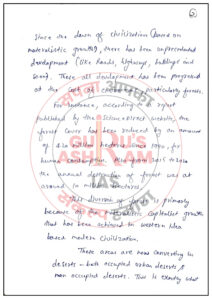 6
Since the dawn of civilization (based on
materialistic growth), there has been unprecedented
development (like roads, highways, buildings and
soon). These all development has been progressed
at the cost of environment particularly forests.
For instance, according to a report
published by the science direct website, the
forest cover has been reduced by an amount
of 420 million hectares since 1990, for
human consumption. Also from 2015 to 2020
the annual deforestation of forest was at
around 10 million hectares.
This diversion of is primarily
because of the materialistic capitalist growth
that has been achieved in western idea
based modern civilization.
These areas are now converting in
deserts - both occupied urban deserts &
non occupied deserts. This is exactly what